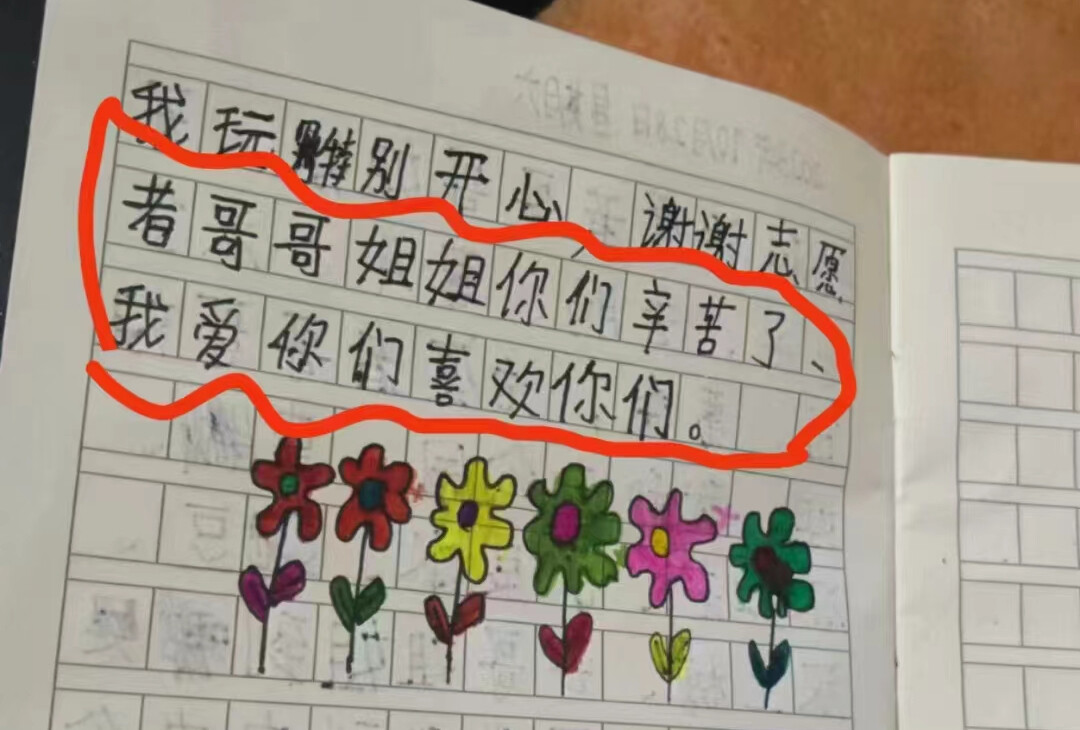 我玩特别开心、谢谢志愿
者哥哥姐姐你们辛苦了、
我爱你们喜欢你们。